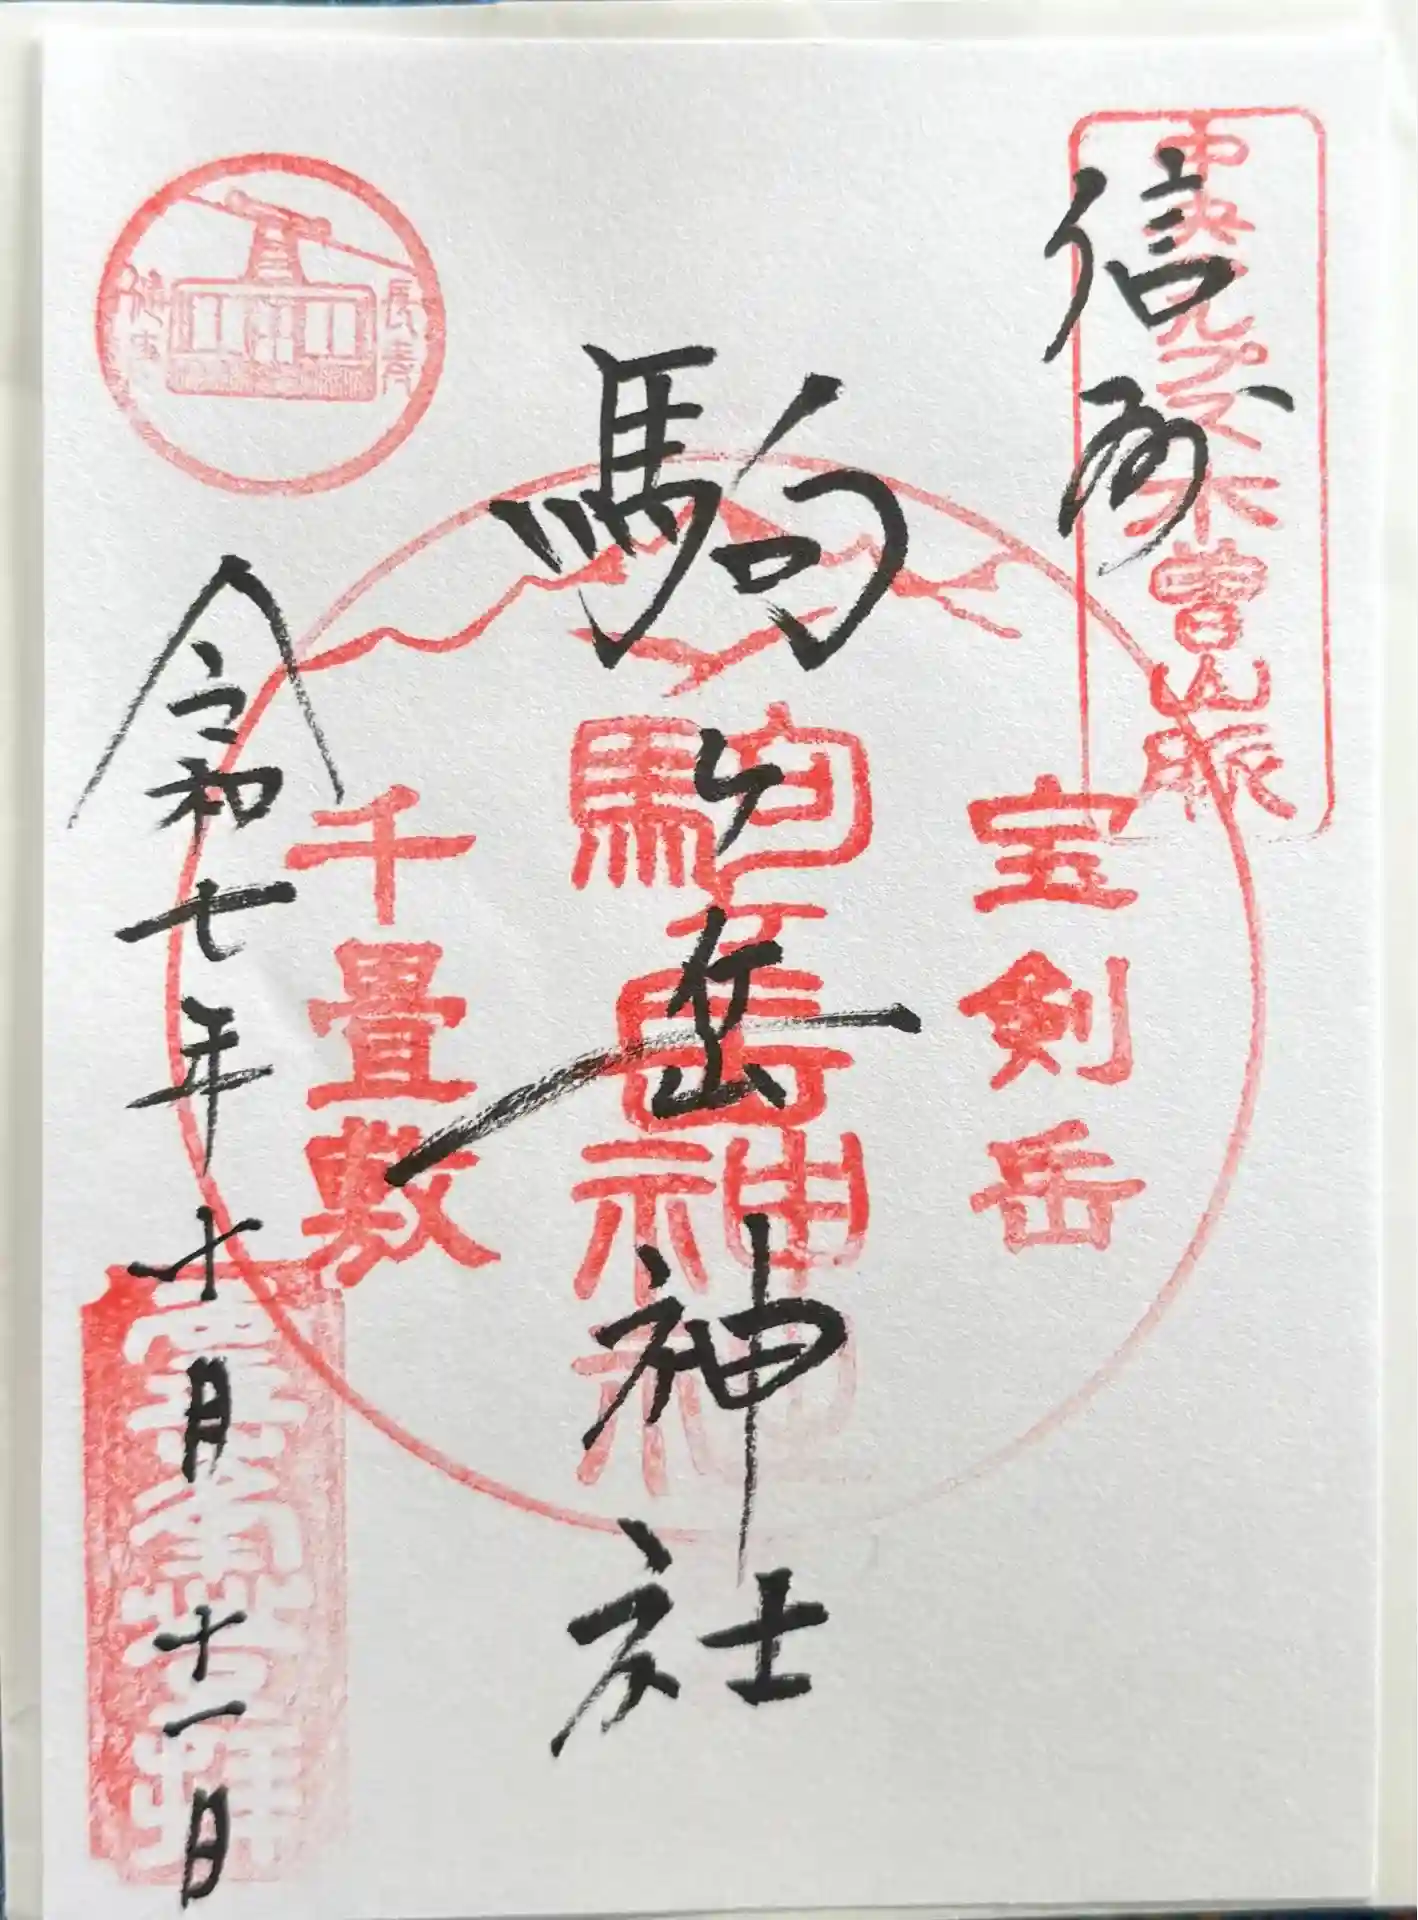 中央アルプス木曽山脈
信州
宝剣岳
駒ヶ岳神社
駒ヶ岳神社
千畳敷
長寿
健康
令和七年十月十一日
登拝